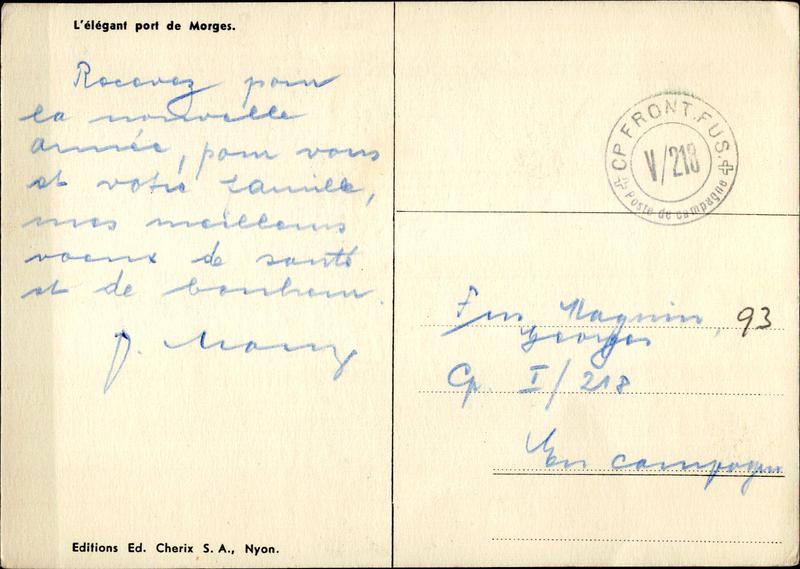 L'élégant port de Morges.
Recevez pour
la nouvelle
année, pour vous
et votre famille,
mes meilleurs
voeux de santé
et de bonheur.
CP FRONT. FUS.
V/218
Poste de campagne
Fus Magnin, 93
Georges
Cp. I/218
En campagne
Editions Ed. Cherix S. A., Nyon.